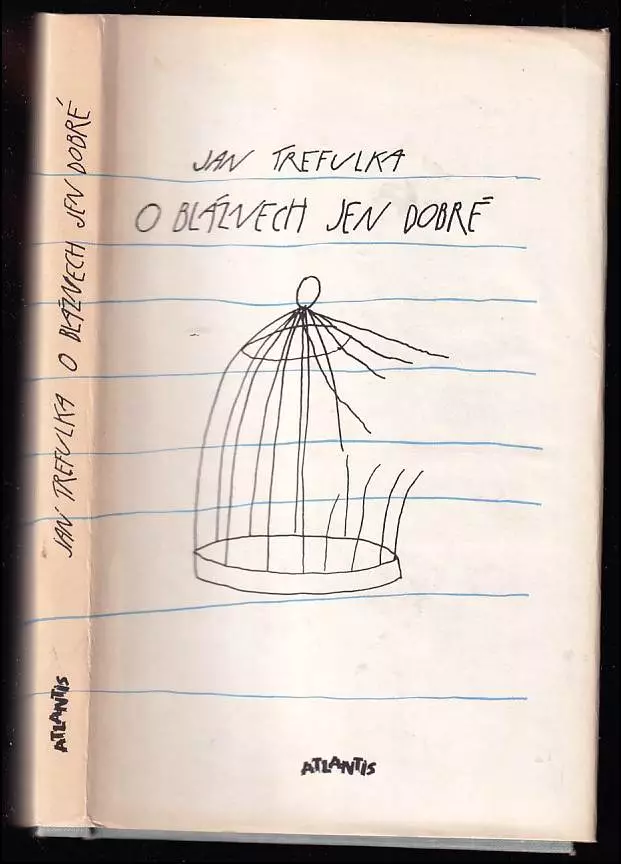 JAN TREFULKA
O BLÁZNECH JEN DOBRÉ
ATLANTIS
JAN TREFULKA O BLÁZNECH JEN DOBRÉ
ATLANTIS